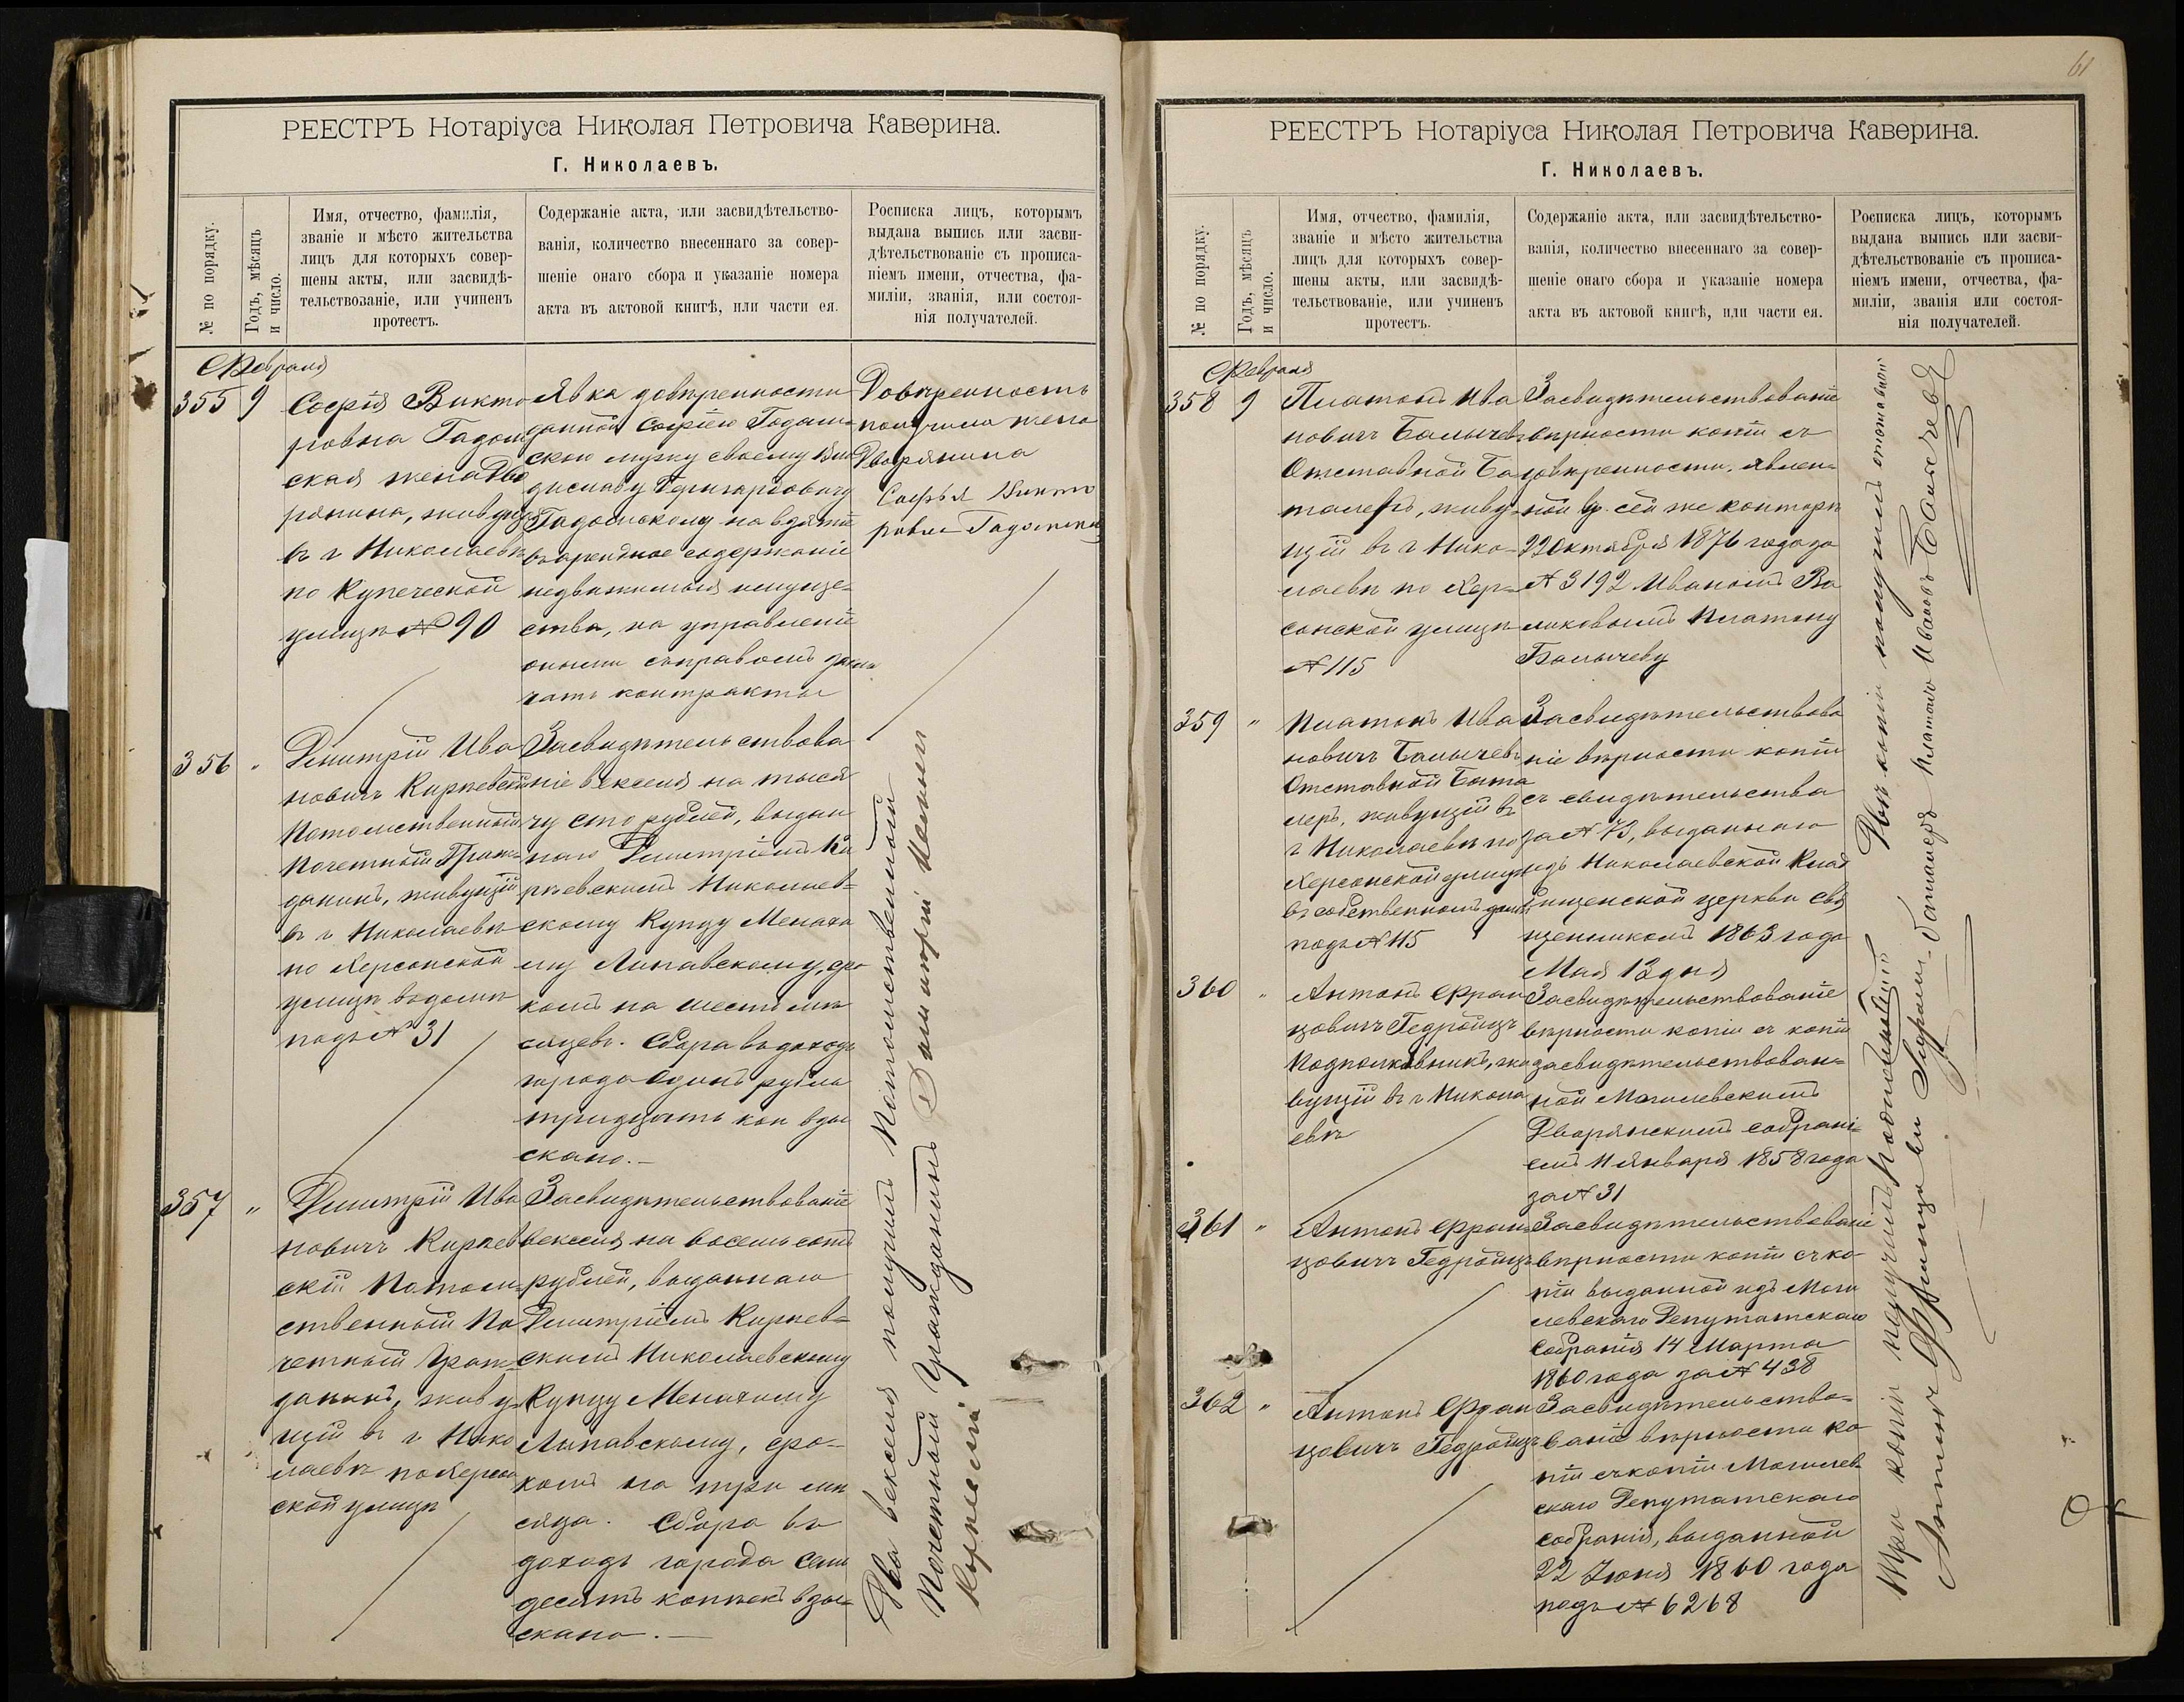 РЕЕСТРЪ Нотаріуса Николая Петровича Каверина.
Г. Николаевъ.
№ по порядку.
Годъ, мѣсяцъ
и число.
Имя, отчество, фамилія,
званіе и мѣсто жительства
лицъ для которыхъ совер-
шены акты, или засвидѣ-
тельствованіе, или учиненъ
протестъ.
Содержаніе акта, или засвидѣтельство-
ванія, количество внесеннаго за совер-
шеніе онаго сбора и указаніе номера
акта въ актовой книгѣ, или части ея.
Росписка лицъ, которымъ
выдана выпись или засви-
дѣтельствованіе съ прописа-
ніемъ имени, отчества, фа-
миліи, званія, или состоя-
нія получателей.
Февраля
355 9
Софія Викто
ровна Гадом
ская жена Дво
рянина, живущ.
въ г Николаевѣ
по Купеческой
улицѣ № 90
Явка довѣренности
данной Софіею Гадом-
скою мужу своему Вла
диславу
Гадомскому на взятіе
въ арендное содержаніе
недвижимаго имуще-
ства, на управленіе
оными съ правомъ заклю
чать контракты
Довѣренность
получила жена
Дворянина
Софья Викто
ровна Гадомская
356 "
Дмитрій Ива
новичъ Кирѣевскій
Потомственный
Почетный Граж-
данинъ, живущій
въ г Николаевѣ
по Херсонской
улицѣ въ домѣ
подъ № 31
Засвидѣтельствова
ніе векселя на тыся
чу сто рублей, выдан
наго Дмитріемъ Ки
рѣевскимъ Николаев-
скому Купцу Менахе
му Липавскому, сро
комъ на шесть мѣ
сяцевъ. Сбора въ доходъ
города одинъ рубль
тридцать коп взы
скано.-
357 "
Дмитрій Ива
новичъ Кирѣев
скій Потом-
ственный По
четный Граж-
данинъ, живу-
щій въ г Нико
лаевѣ по Херсон
ской улицѣ
Засвидѣтельствованіе
векселя на восемьсотъ
рублей, выданнаго
Дмитріемъ Кирѣев-
скимъ Николаевскому
Купцу Менахему
Липавскому, сро-
комъ на три мѣ
сяца. Сбора въ
доходъ города семь
десятъ копѣекъ взы-
скано.-
Два векселя получилъ Потомственный
Почетный Гражданинъ Дмитрій
61
РЕЕСТРЪ Нотаріуса Николая Петровича Каверина.
Г. Николаевъ.
№ по порядку.
Годъ, мѣсяцъ
и число.
Имя, отчество, фамилія,
званіе и мѣсто жительства
лицъ для которыхъ совер-
шены акты, или засвидѣ-
тельствованіе, или учиненъ
протестъ.
Содержаніе акта, или засвидѣтельство-
ванія, количество внесеннаго за совер-
шеніе онаго сбора и указаніе номера
акта въ актовой книгѣ, или части ея.
Росписка лицъ, которымъ
выдана выпись или засви-
дѣтельствованіе съ прописа-
ніемъ имени, отчества, фа-
миліи, званія или состоя-
нія получателей.
Февраля
358 9
Платонъ Ива
новичъ Балычевъ
Отставной Ба
талеръ, живу-
щій въ г Нико-
лаевѣ по Хер-
сонской улицѣ
№ 115
Засвидѣтельствованіе
вѣрности копіи съ
довѣренности, явлен-
ной въ сей же конторѣ
22 Октября 1876 года за
№ 3192 Иваномъ
Платону
Балычеву
359 "
Платонъ Ива
новичъ Балычевъ
Отставной Бата
леръ, живущій въ
г Николаевѣ по
Херсонской улицѣ
въ собственномъ домѣ
подъ № 115
Засвидѣтельствова
ніе вѣрности копіи
съ свидѣтельства
за № 73, выданнаго
изъ Николаевской Клад
бищенской церкви свя
щенникомъ 1863 года
Мая 13 дня
Двѣ копіи получилъ отставной
баталеръ Платонъ Ивановъ Балычевъ
360 "
Антонъ Фран
цовичъ Гедройцъ
Подполковникъ, жи
вущій въ г Никола
евѣ
Засвидѣтельствованіе
вѣрности копіи съ копіи
засвидѣтельствован-
ной Могилевскимъ
Дворянскимъ собрані-
емъ 11 января 1858 года
за № 31
361 "
Антонъ Фран-
цовичъ Гедройцъ
Засвидѣтельствованіе
вѣрности копіи съ ко-
піи выданной изъ Моги
левскаго Депутатскаго
Собранія 14 Марта
1860 года за № 438
362 "
Антонъ Фран
цовичъ Гедройцъ
Засвидѣтельство-
ваніе вѣрности ко
піи съ копіи Могилев-
скаго Депутатскаго
собранія, выданной
22 Іюня 1860 года
подъ № 6268
Три копіи получилъ Подполковникъ
Антонъ